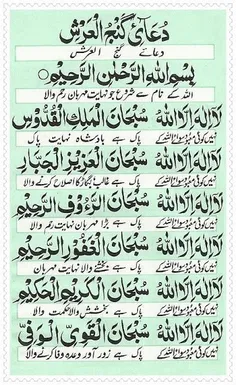 دُعَائے گَنجُ الْعَرْش
دعائے گنج العرش
بِسْمِ اللهِ الرَّحْمٰنِ الرَّحِيْمِ
اللہ کے نام سے شروع جو نہایت مہربان رحم والا
لَا اِلٰهَ اِلَّا اللهُ سُبْحَانَ الْمَلِكِ الْقُدُّوْسِ
نہیں کوئی معبود سوائے اللہ کے پاک ہے بادشاہ نہایت پاک
لَا اِلٰهَ اِلَّا اللهُ سُبْحَانَ الْعَزِيْزِ الْجَبَّارِ
نہیں کوئی معبود سوائے اللہ کے پاک ہے غالب بگڑے کا اصلاح کرنے والا
لَا اِلٰهَ اِلَّا اللهُ سُبْحَانَ الرَّءُوْفِ الرَّحِيْمِ
نہیں کوئی معبود سوائے اللہ کے پاک ہے بڑا مہربان نہایت رحم والا
لَا اِلٰهَ اِلَّا اللهُ سُبْحَانَ الْغَفُوْرِ الرَّحِيْمِ
نہیں کوئی معبود سوائے اللہ کے پاک ہے بخشنے والا نہایت مہربان
لَا اِلٰهَ اِلَّا اللهُ سُبْحَانَ الْكَرِيْمِ الْحَكِيْمِ
نہیں کوئی معبود سوائے اللہ کے پاک ہے بخشش والا حکمت والا
لَا اِلٰهَ اِلَّا اللهُ سُبْحَانَ الْقَوِيِّ الْوَفِيِّ
نہیں کوئی معبود سوائے اللہ کے پاک ہے زور آور وعدہ وفا کرنے والا